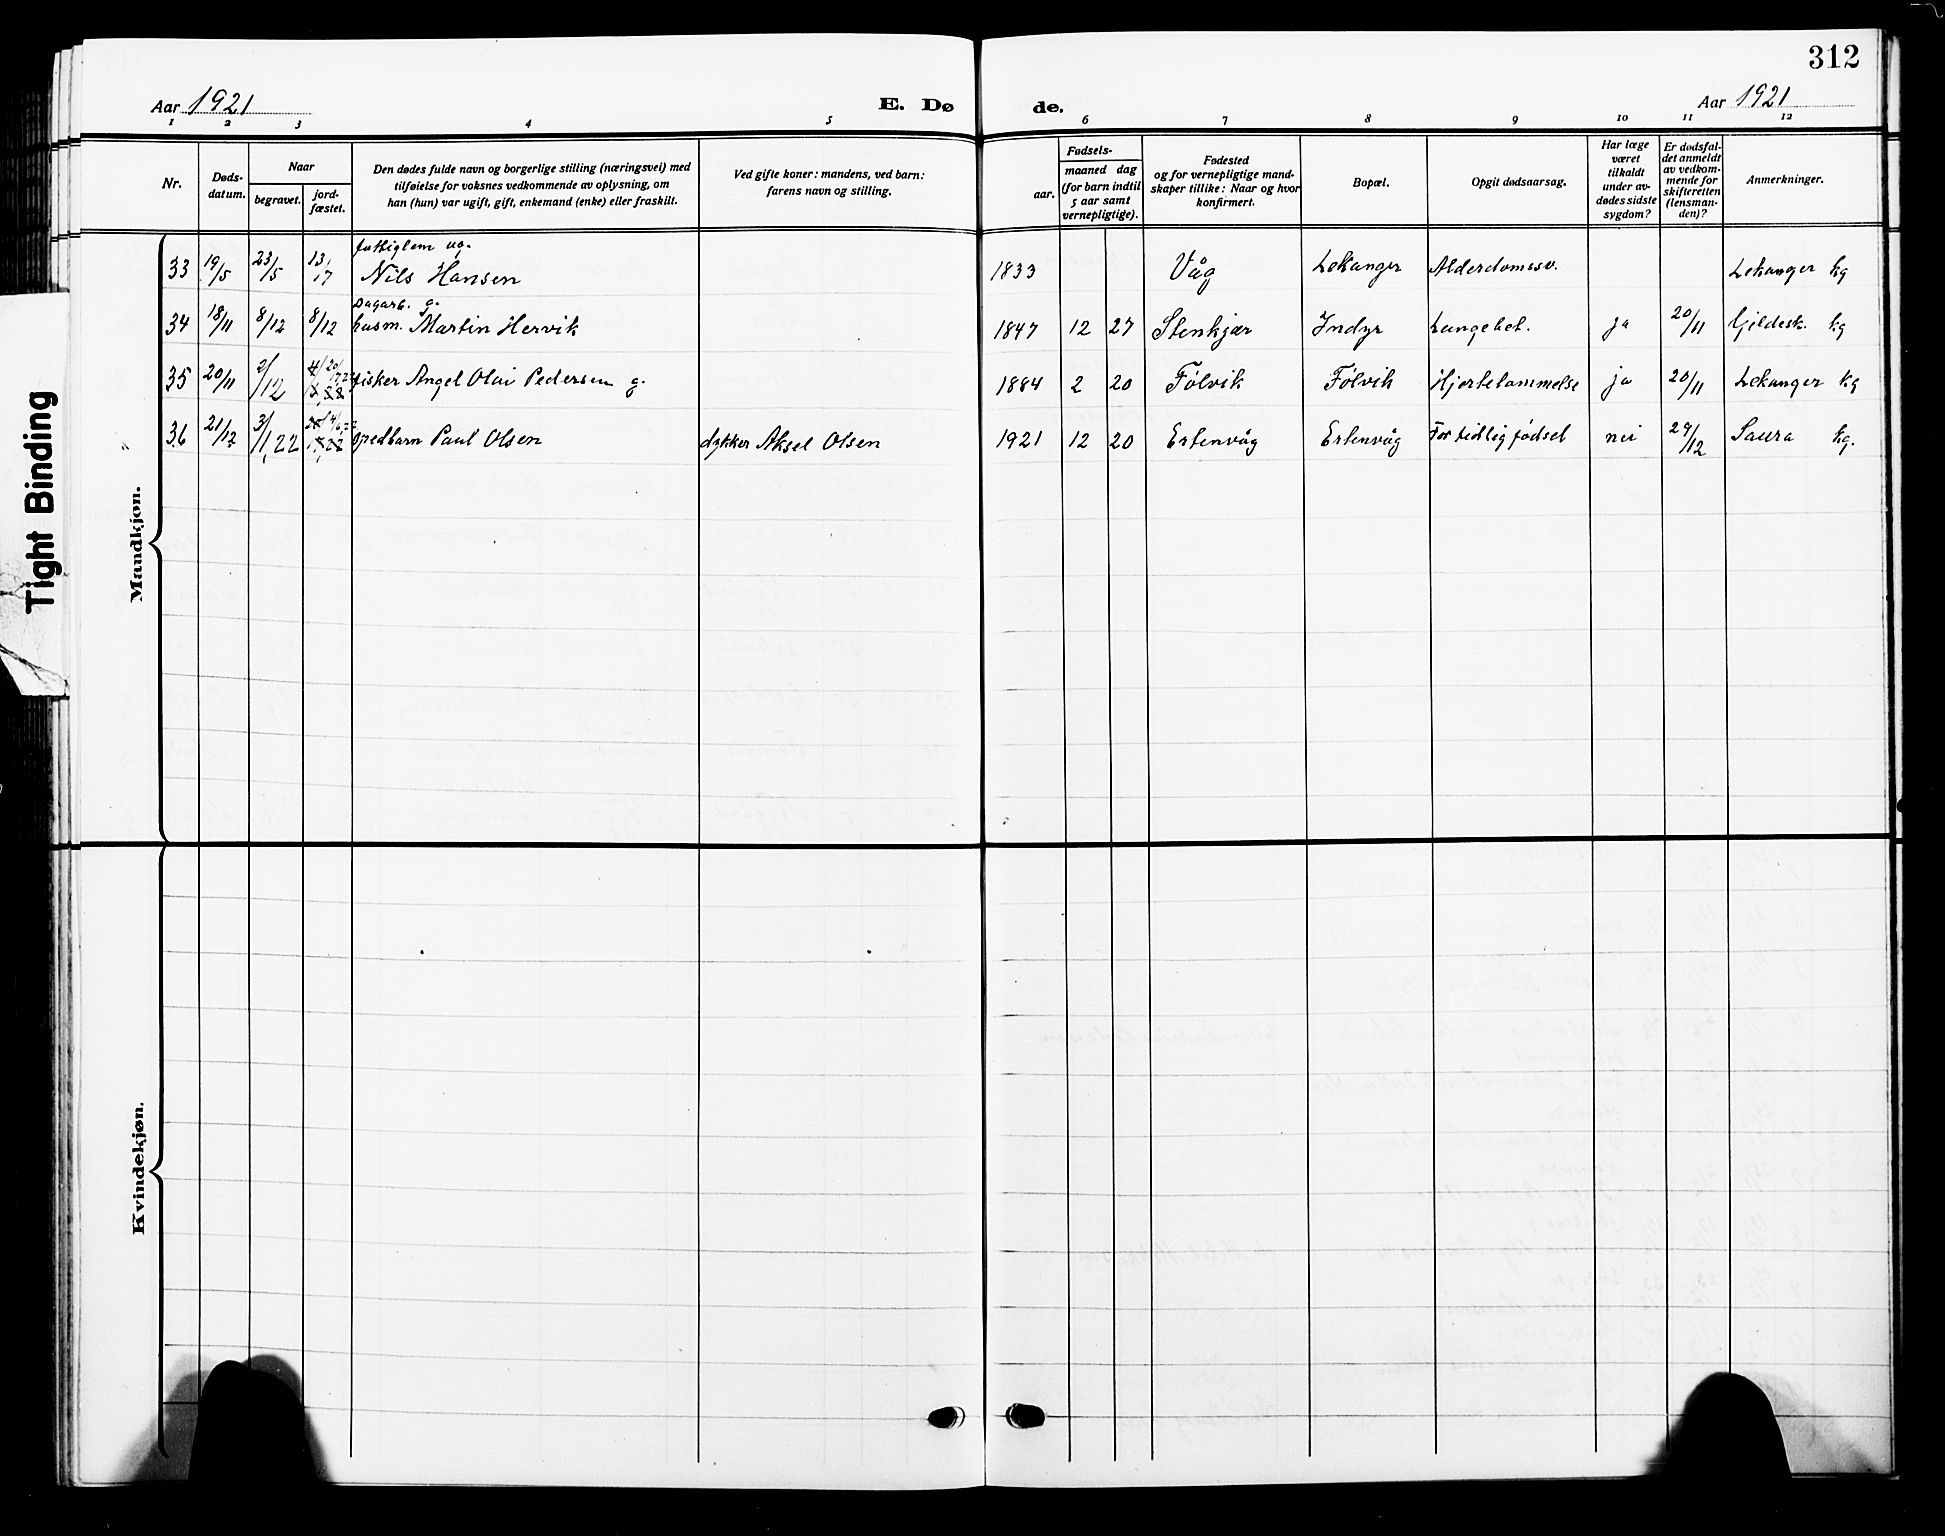 312
Aar 1921
E. Dø
de.
Aar 1921
1 2 3 4 5 6 7 8 9 10 11 12
Nr.
Døds-
datum.
Naar
begravet.
jord-
fæstet.
Den dødes fulde navn og borgerlige stilling (næringsvei) med
tilføielse for voksnes vedkommende av oplysning, om
han (hun) var ugift, gift, enkemand (enke) eller fraskilt.
Ved gifte koner: mandens, ved barn:
farens navn og stilling.
Fødsels-
aar.
maaned dag
(for barn indtil
5 aar samt
vernepligtige).
Fødested
og for vernepligtige mand-
skaper tillike: Naar og hvor
konfirmert.
Bopæl.
Opgit dødsaarsag.
Har læge
været
tilkaldt
under av-
dødes sidste
sygdom?
Er dødsfal-
det anmeldt
av vedkom-
mende for
skifteretten
(lensman-
den)?
Anmerkninger.
fattiglem ug.
33 19/5 23/5 13/17 Nils Hansen 1833 Våg Lekanger Alderdomssv. Lekanger kg
Dagarb. g.
34 18/11 8/12 8/12 husm. Martin Hervik 1847 12 27 Stenkjær Indyr Lungebet. ja 20/11 Gjildesk. kg
35 20/11 2/12 fisker Angel Olai Pedersen g. 1884 2 20 Følvik Følvik Hjertelammelse ja 20/11 Lekanger kg
36 21/12 3/1,22 Spedbarn Paul Olsen dykker Aksel Olsen 1921 12 20 Ertenvåg Ertenvåg For tidlig fødsel nei 29/12 Saura kg.
Mandkjøn.
Kvindekjøn.
Tight Binding